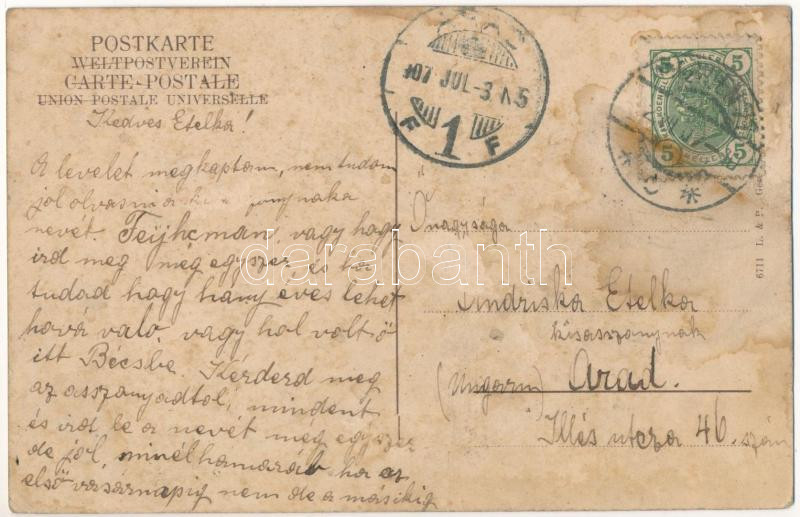 POSTKARTE
WELTPOSTVEREIN
CARTE-POSTALE
UNION POSTALE UNIVERSELLE
Kedves Etelka!
A levelet megkaptam, nem tudom
jol olvasni a
nevét. Feijhcman vagy hogy
ird meg még egyszer és ha
tudod hogy hany éves lehet
hová való, vagy hol volt ő
itt Becsbe. Kérderd meg
az asszonyadtol, mindent
és ird le a nevét még egyszer
de jol, minélhamaráb ha az
első vasárnapig nem de a másikig
'07 JUL -3
F 1 F
5 5
5 5
Őnagysága
Andriska Etelka
kisasszonynak
(Ungarn) Arad.
Illés utcza 46. szám
6711 L. & P.
darabanth